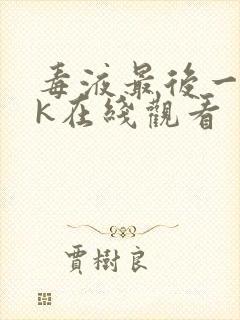 毒液最後一
K在綫觀看
賈樹良